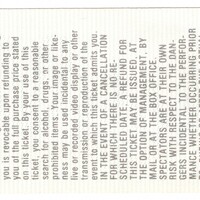 you is revocable upon refunding to
you the purchase price stated
on this ticket. By your use of this
ticket, you consent to a reasonable
search for alcohol, drugs, or other
prohibited items. Your image or like-
ness may be used incidental to any
live or recorded video display or other
transmission or reproduction of the
event to which this ticket admits you.
IN THE EVENT OF A CANCELLATION
FOR WHICH THERE IS NO RE-
SCHEDULED DATE A REFUND FOR
THIS TICKET MAY BE ISSUED, AT
THE OPTION OF MANAGEMENT, BY
MAIL OR AT THE BOX OFFICE.
SPECTATORS ARE AT THEIR OWN
RISK WITH RESPECT TO THE DAN-
GERS INCIDENTAL TO THE PERFOR-
MANCE WHETHER OCCURRING PRIOR